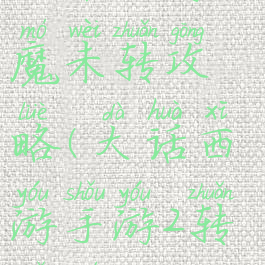 mó wèi zhuǎn gōng
魔未转攻
lüè dà huà xī
略(大话西
yóu shǒu yóu zhuǎn
游手游2转